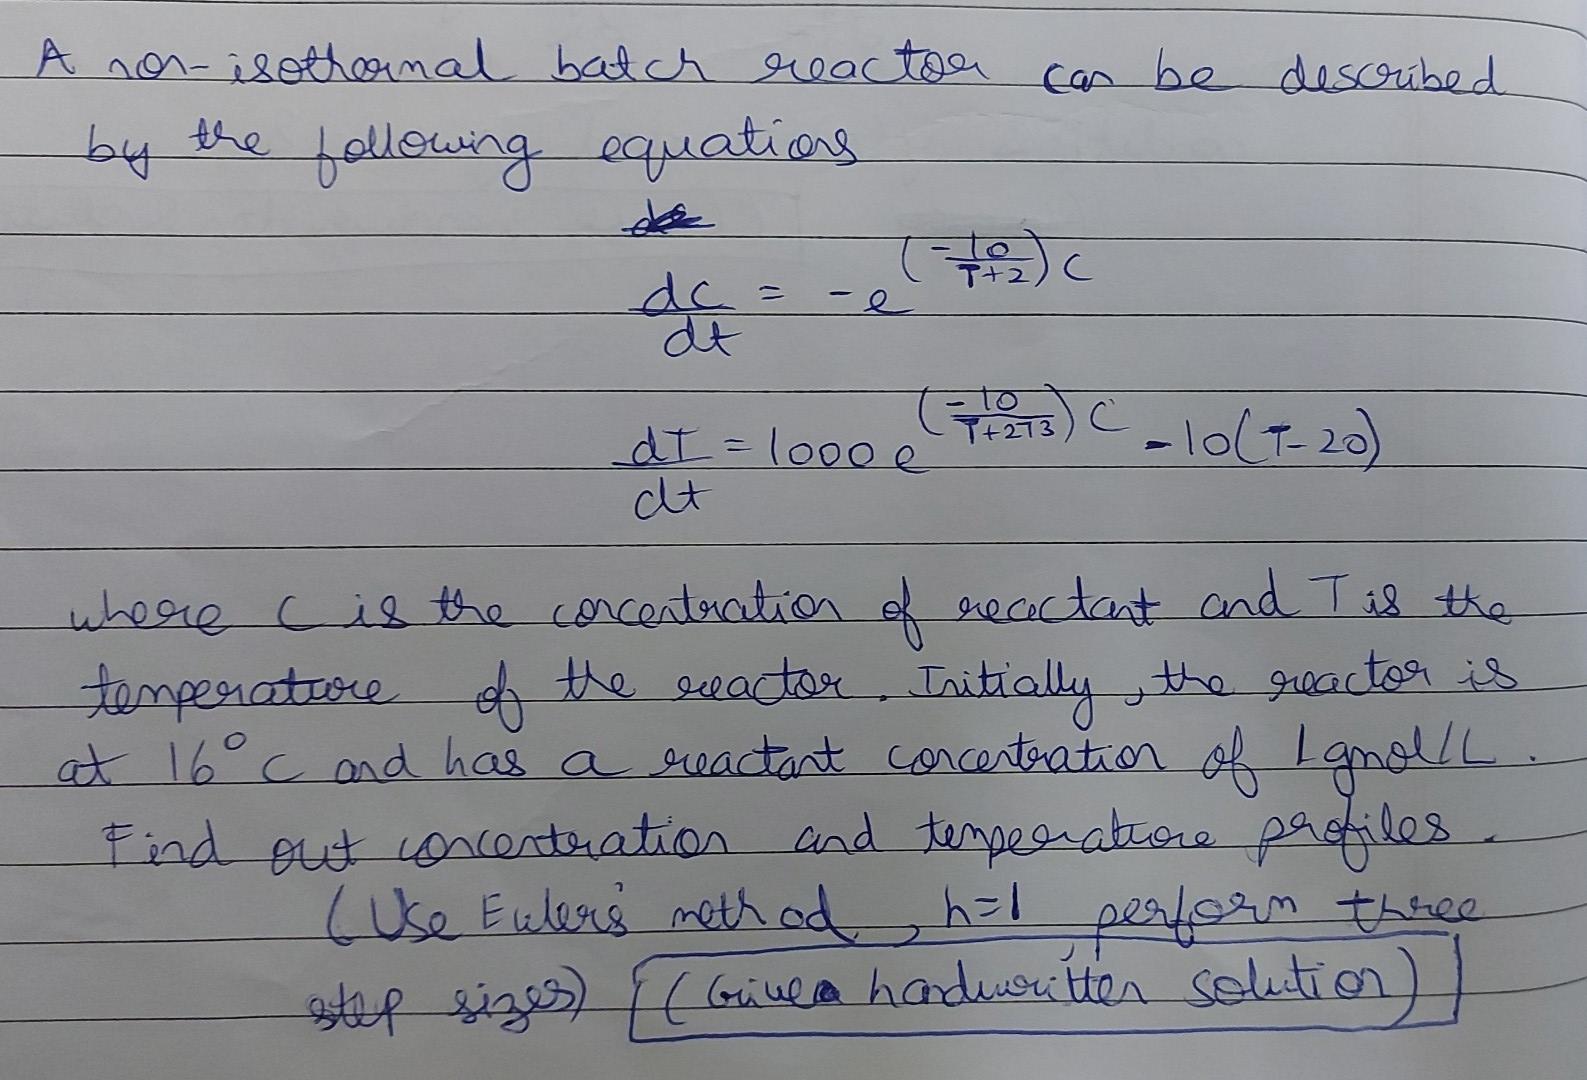 A non-isothermal batch reactor can be described
by the following equations
dC/dt = -e^(-10/T+2) C
dT/dt = 1000 e^(-10/T+273) C - 10(T-20)
where C is the concentration of reactant and T is the
temperature of the reactor. Initially, the reactor is
at 16°C and has a reactant concentration of 1 gmol/L.
Find out concentration and temperature profiles.
(Use Euler's method, h=1, perform three
step sizes) (Give handwritten solution)